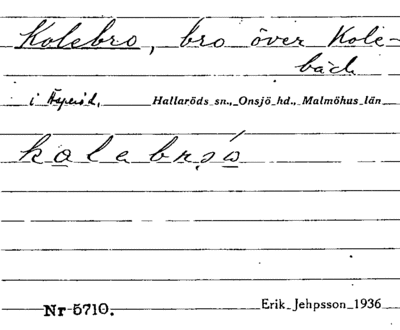 Kolebro, bro över Kole-
bäck
i Äsperöd, Hallaröds sn., Onsjö hd., Malmöhus län
kolebro
Nr 5710. Erik Jehpsson 1936